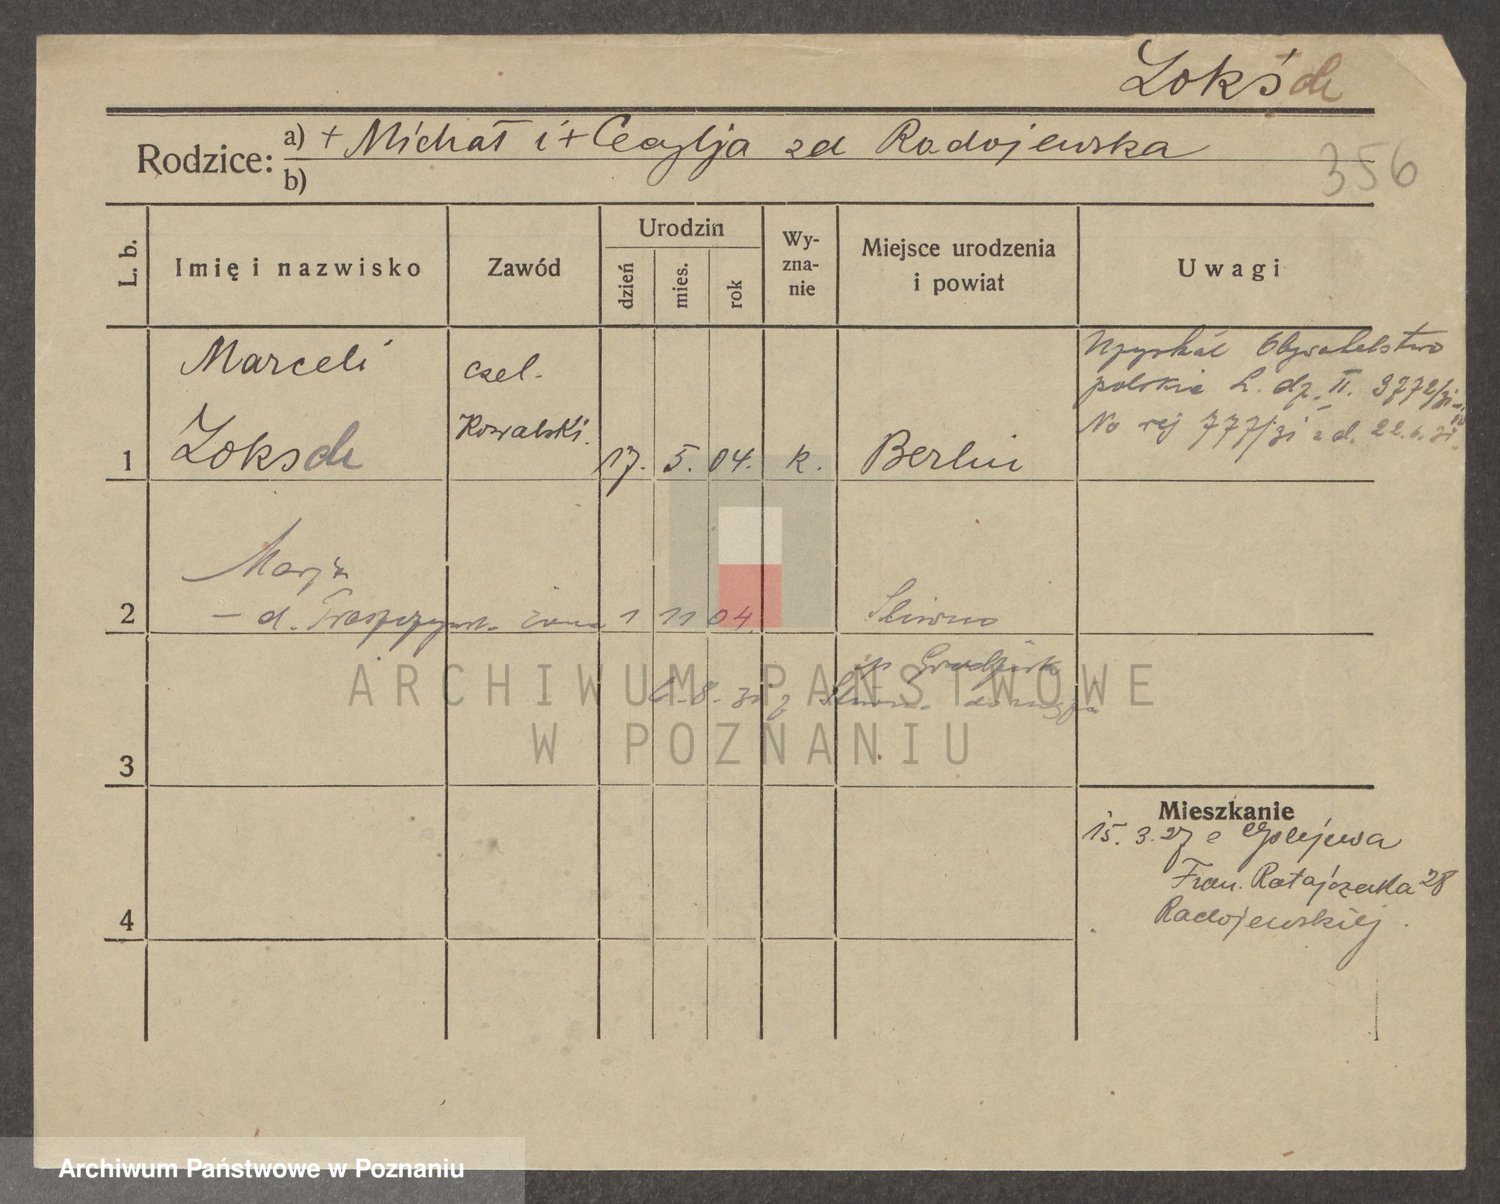 Loksch
Rodzice: a) + Michał i + Cecylja zd Radojewska
b)
356
L. b.
Imię i nazwisko
Zawód
Urodzin
dzień
mies.
rok
Wy-
zna-
nie
Miejsce urodzenia
i powiat
Uwagi
Marceli
Loksch
czel.
Kowalski.
1
17. 5. 04. k. Berlin
Uzyskał Obywatelstwo
polskie L. dz. II. 3772/31
No rej 777/31 z d. 22.6.31.
Marja
2
żona 1 11 04. Śliwno
6.8.31 z
3
Mieszkanie
15. 3. 27 z
Fran. Ratajczaka 28
Radojewskiej.
4
ARCHIWUM PAŃSTWOWE
W POZNANIU
Archiwum Państwowe w Poznaniu